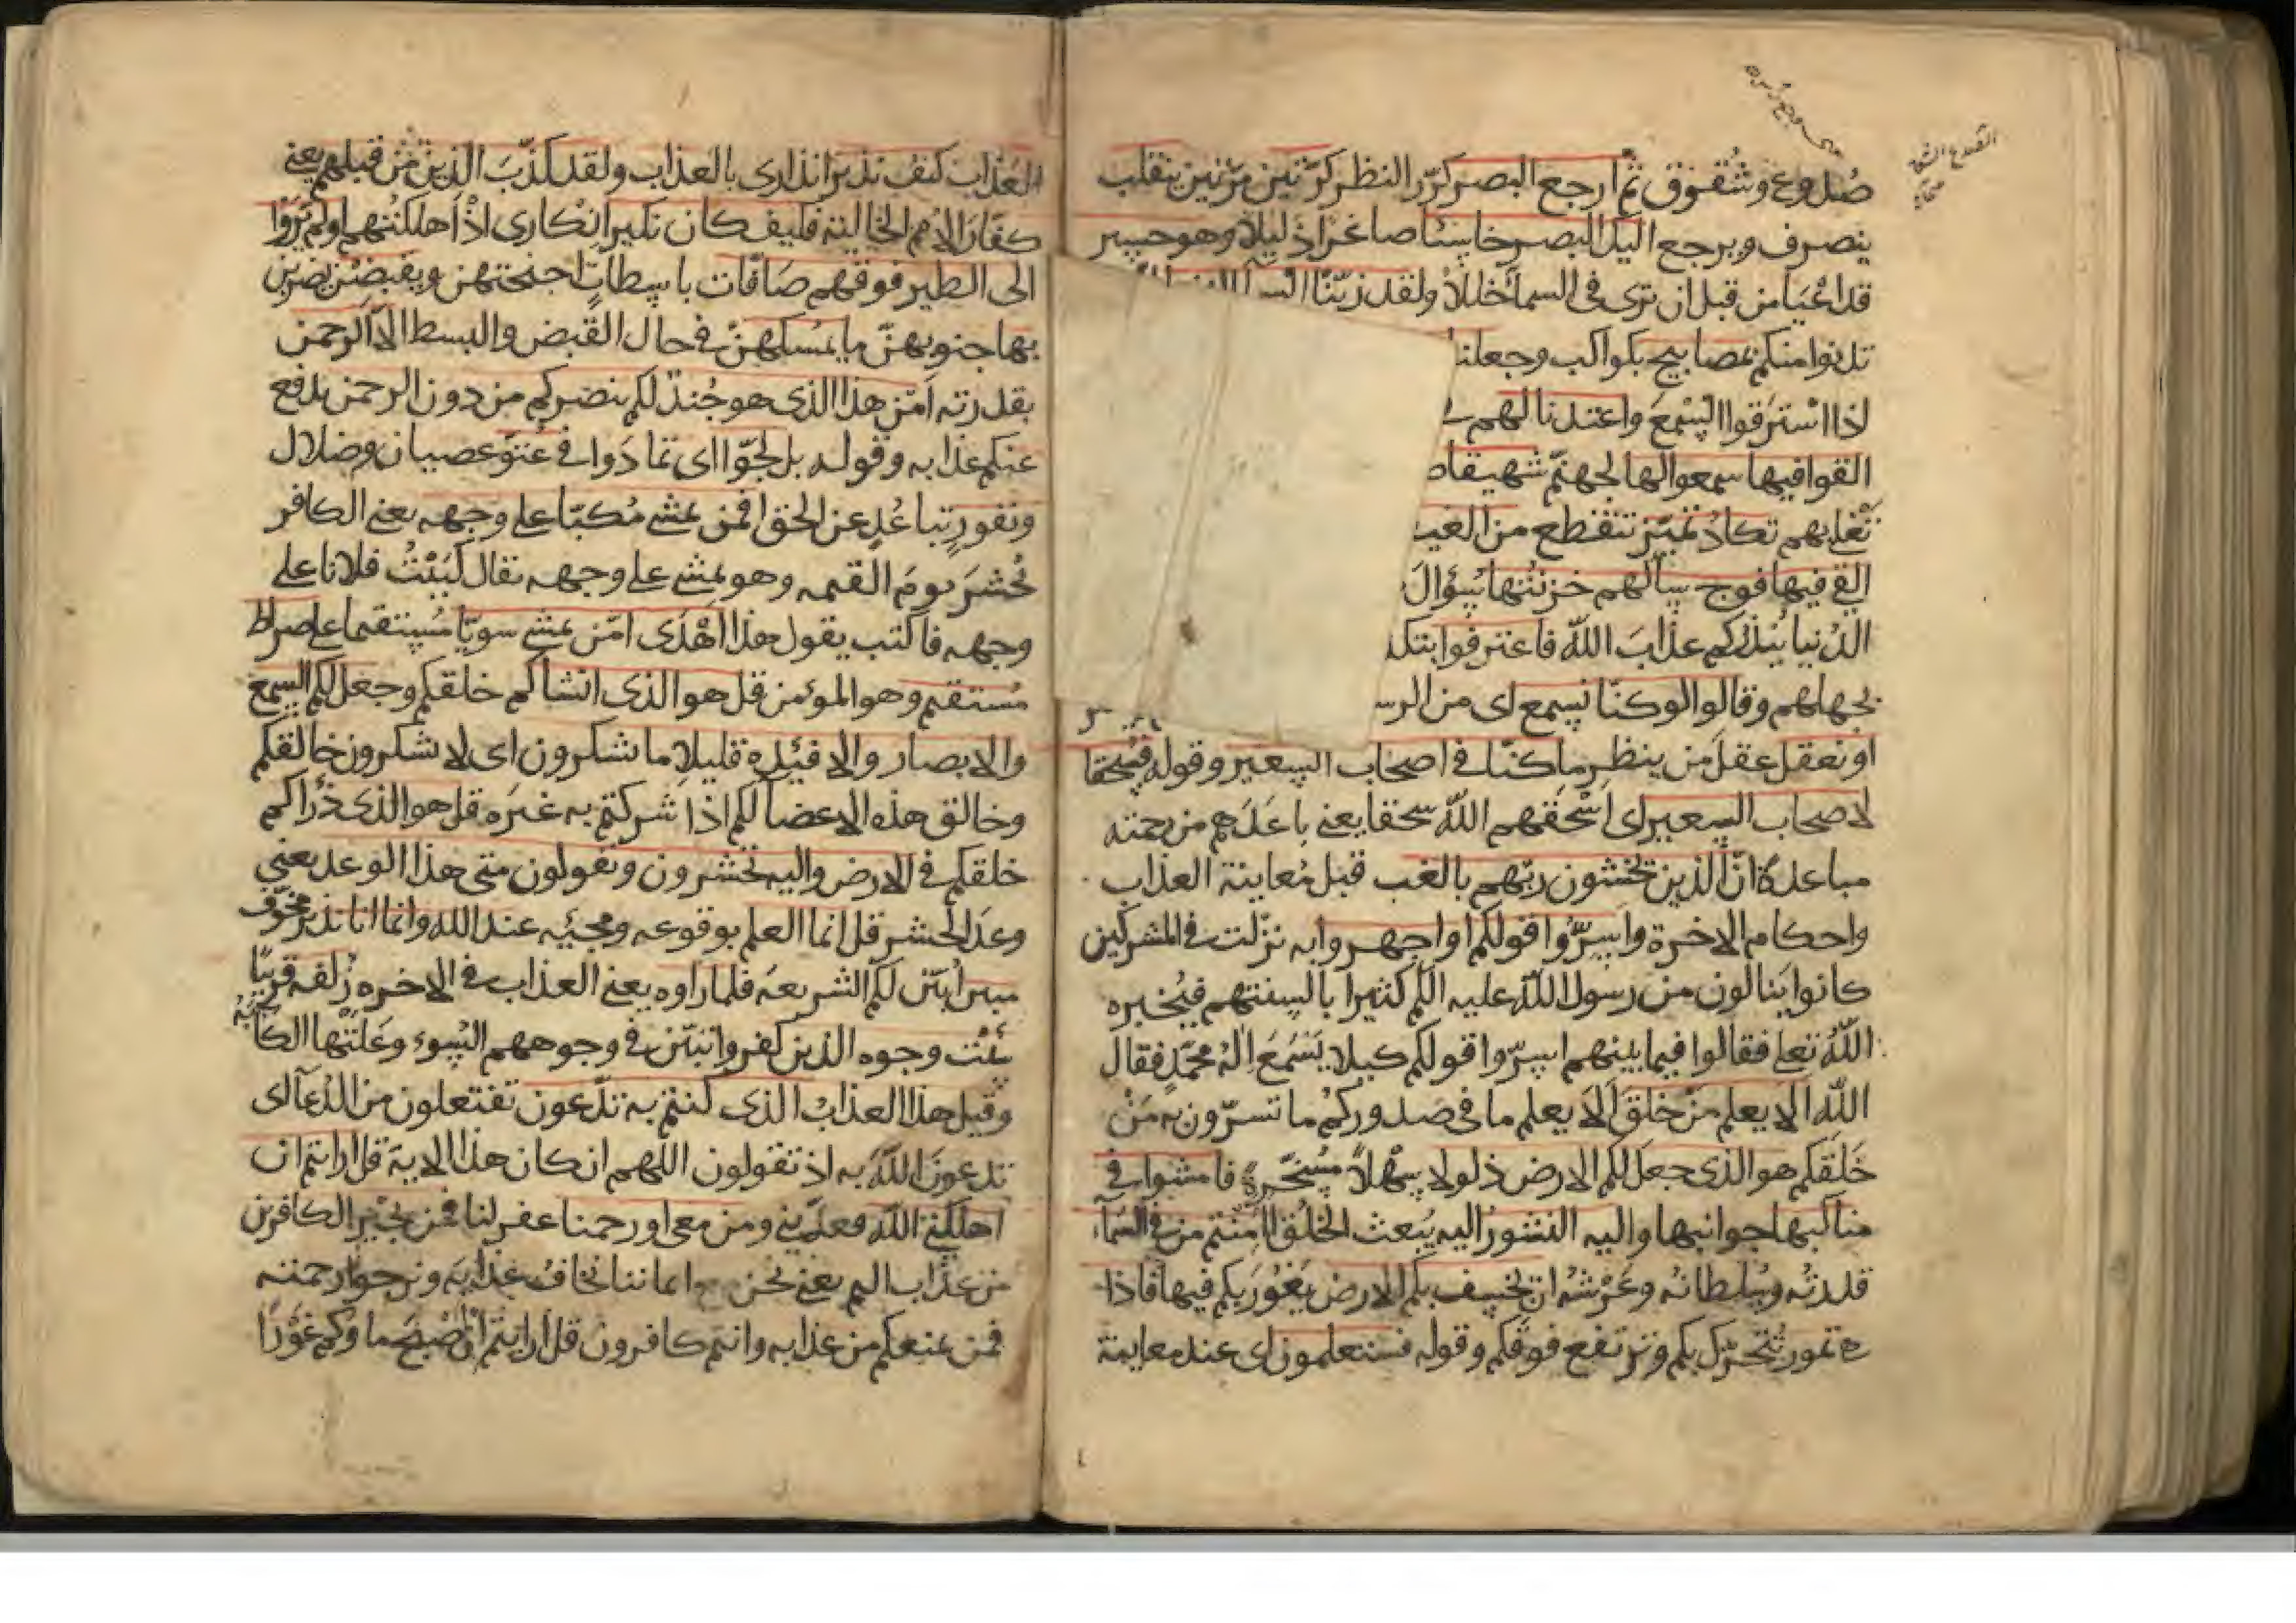 صُدوع وشُقوق ثم ارجع البصر كرّر النظر كرّتين مرّتين ينقلب
ينصرف ويرجع اليك البصر خاسئا صاغرا ذليلا وهو حسير
قد اعْيَا من قبل ان يرى فى السما خللا ولقد زيّنّا السما الدنيا
تدنوا منكم بمصابيح بكواكب وجعلنا
اذا استرقوا السّمعَ واعتدنا لهم
القوا فيها سمعوا لها لجهنّم شهيقا
تَغْلى بهم تكادُ تميّز تتقطع من الغيـ
القى فيها فوج سألهم خزنتُها سُؤالَ
الدّنيا يُنذركم عذابَ الله فاعترفوا بتكذ
بجهلهم وقالوا لو كنّا نسمع اى من الرسـ
او نعقل عقلَ من ينظر ما كنّا فى اصحاب السعير وقوله فسُحقا
لاصحاب السعير اى اَسْحَقَهم اللّه سحقا يعنى باعَدَهم من رحمته
مباعدة انّ الذين يخشون ربّهم بالغيب قبل مُعاينة العذاب
واحكام الاخرة واسِرُّوا قولكم او اجهروا به نزلت فى المشركين
كانوا ينالون من رسول اللّه عليه السلم كثيرا بالسنتهم فيُخبره
اللّهُ تعلى فقالوا فيما بينهم اسِرّوا قولكم كيلا يَسْمَعَ اِلهُ محمّدٍ فقال
اللّه الا يعلم مَنْ خلقَ الا يعلم ما فى صدوركم ما تسرّون به مَنْ
خَلَقكم هو الذى جعل لكم الارض ذلولا سَهْلاً مُسخّرة فامشوا فى
مناكبها جوانبها واليه النشور اليه يُبعث الخلُق اامنتم من فى السمآء
قدرتُه وسُلطانُه وعَرْشُه ان يخسف بكم الارض يَغُورَ بكم فيها فاذا
هى تمور تتحرّك بكم وترتفع فوقكم وقوله فستعلمون اى عند معاينة
العذاب كيف نذير انذارى بالعذاب ولقد كذّبَ الذين من قبلهم يعنى
كفّارَ الامم الخالية فكيف كان نكير انْكارى اذْ اهلكتُهم اولم يَرَوْا
الى الطير فوقهم صَافّات باسطاتٍ اجنحتهن ويقبضن يضربن
بها جنوبهنّ ما يُمسكهنّ فى حال القبض والبسط الاّ الرحمن
بقدرته اَمّن هذا الذى هو جُندٌ لكم ينصركم من دون الرحمن يدفع
عنكم عذابه وقوله بل لجّوا اى تمادَوا فى عُتوّ عصيان وضلال
ونفورٍ تباعُدٍ عن الحق افمن يمشى مُكبّا على وجهه يعنى الكافر
يُحْشَرَ يومَ القيمه وهو يمشى على وجهه تقال كَبَبْتُ فلانا على
وجهه فاكتب يقول هذا اَهْدَى امّن يمشى سويّا مُستقيما على صراط
مُستقيم وهو المؤمن قل هو الذى انشاكم خلقكم وجعل لكم السمع
والابصار والافئدة قليلا ما تشكرون اى لا تشكرون خالقكم
وخالق هذه الاعضا لكم اذا شركتم به غيرَه قل هو الذى ذَرَاكم
خلقكم فى الارض واليه تحشرون وتقولون متى هذا الوعد يعنى
وعدَ الحشر قل انما العلم بوقوعه ومجيئه عند الله وانما انا نذير مخوّف
مبين اُبيّن لكم الشريعه فلما راوه يعنى العذاب فى الاخره زُلفه قريبًا
سيئت وجوه الذين كفروا تبيّن فى وجوههم السُوء وعَلَتْها الكآبَةُ
وقيل هذا العذابُ الذى كنتم به تدّعون تفتعلون من الدُعآ اى
تدعونَ اللّهَ به اذ تقولون اللهم ان كان هذا الاية قل ارايتم ان
اهلكنى اللّه فعذّبنى ومن معى او رحمنا غفر لنا فمن يُجير الكافرين
من عذاب اليم يعنى نحن مع ايماننا نخافُ عذابَه ونرجوا رحمته
فمن يمنعكم من عذابه وانتم كافرون قل ارايتم ان اَصْبحَ ماوكم غوْرًا